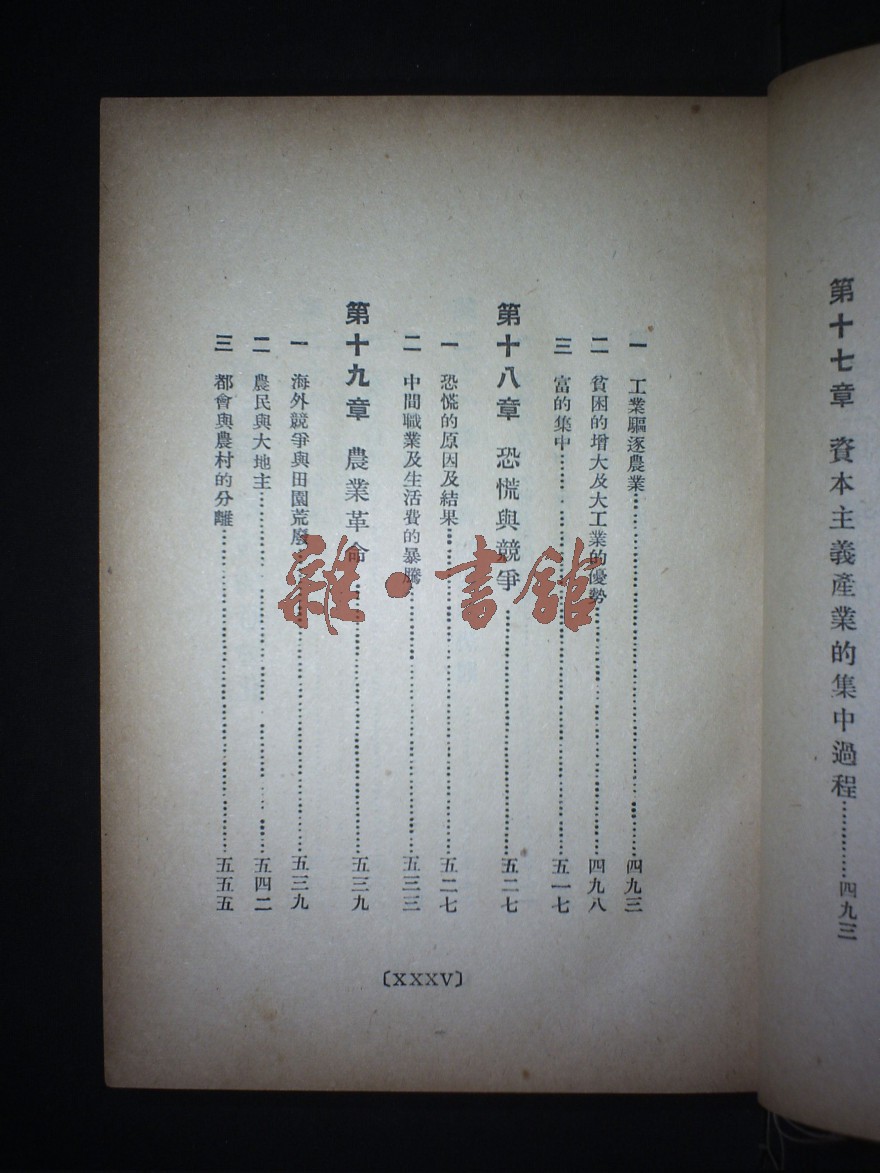 第十七章 資本主義產業的集中過程…………四九三
一 工業驅逐農業…………四九三
二 貧困的增大及大工業的優勢…………四九八
三 富的集中…………五一七
第十八章 恐慌與競爭…………五二七
一 恐慌的原因及結果…………五二七
二 中間職業及生活費的暴騰…………五三三
第十九章 農業革命…………五三九
一 海外競爭與田園荒廢…………五三九
二 農民與大地主…………五四二
三 都會與農村的分離…………五五五
〔XXXV〕
雜·書館